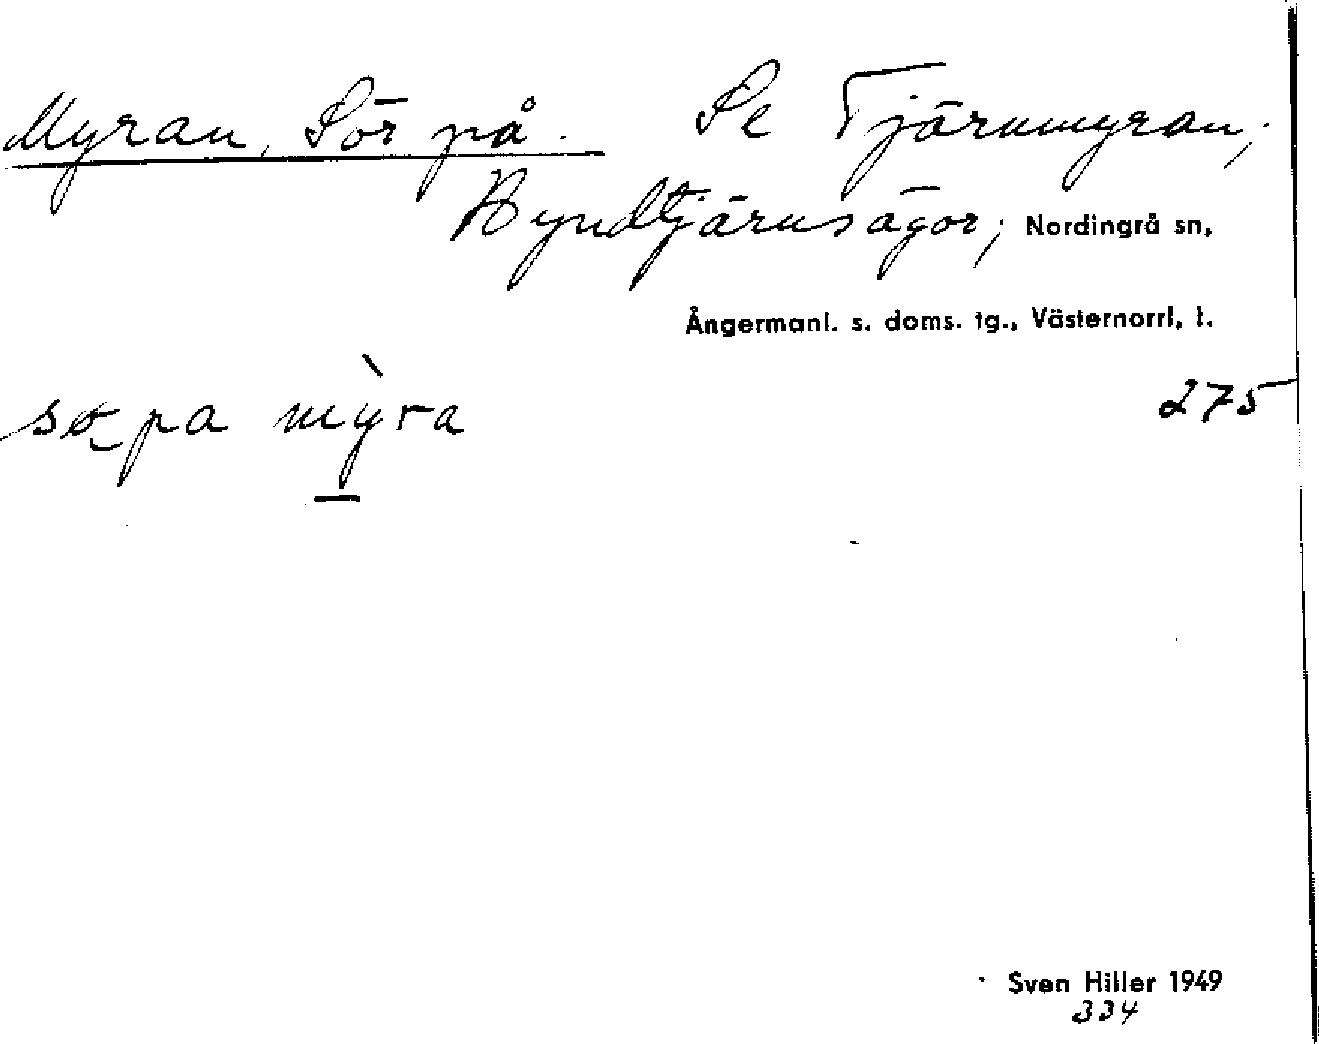 Myran, Sör på. Se Tjärnmyran;
Byndtjärnsägor; Nordingrå sn,
Ångermanl. s. doms. tg., Västernorrl. l.
275
sø̠ pa mỳ̠ra
Sven Hiller 1949
334